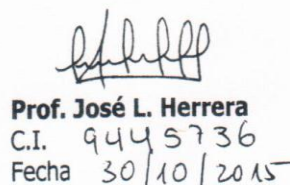 Prof. José L. Herrera
C.I. 9445736
Fecha 30/10/2015